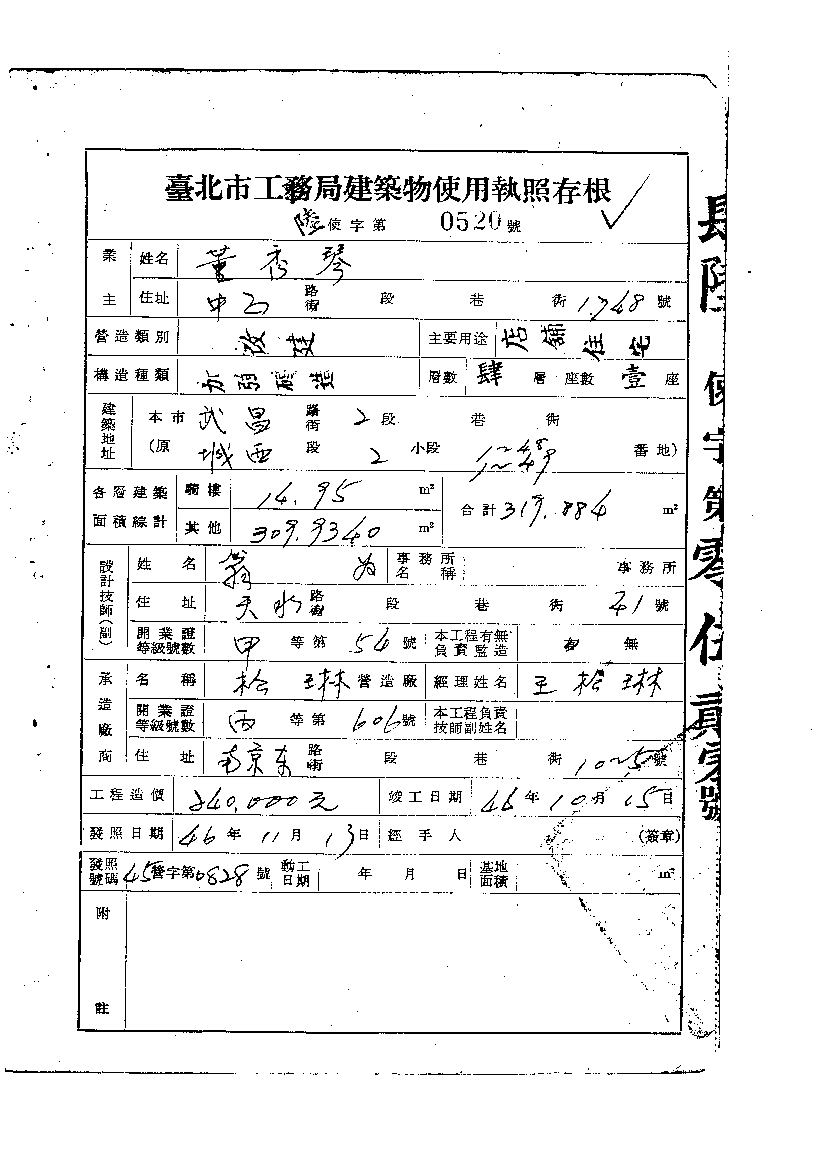 臺北市工務局建築物使用執照存根
陸使字第 0520 號
業主 姓名 董秀琴
住址 中 路街 段 巷 街 號
營造類別 改建 主要用途 店舖住宅
構造種類 加強磚造 層數 肆 層 座數 壹 座
建築地址 本市 武昌 路街 2 段 巷 街
(原 城西 段 2 小段 1~48 番地)
1~49
各層建築面積線計 騎樓 14.95 m² 合計 319.884 m²
其他 309.9340 m²
設計技師(副) 姓名 翁 事務所名稱 事務所
住址 天水 路街 段 巷 街 41 號
開業證等級號數 甲 等第 54 號 本工程有無負責監造 有 無
承造廠商 名稱 松琳 營造廠 經理姓名 王松琳
開業證等級號數 丙 等第 606 號 本工程負責技師副姓名
住址 南京东 路街 段 巷 街 10~5 號
工程造價 240,000元 竣工日期 46 年 10 月 15 日
發照日期 46 年 11 月 13 日 經手人 (簽章)
發照號碼 45 營字第 0828 號 動工日期 年 月 日 基地面積 m²
附註
陸使字第零伍貳零號